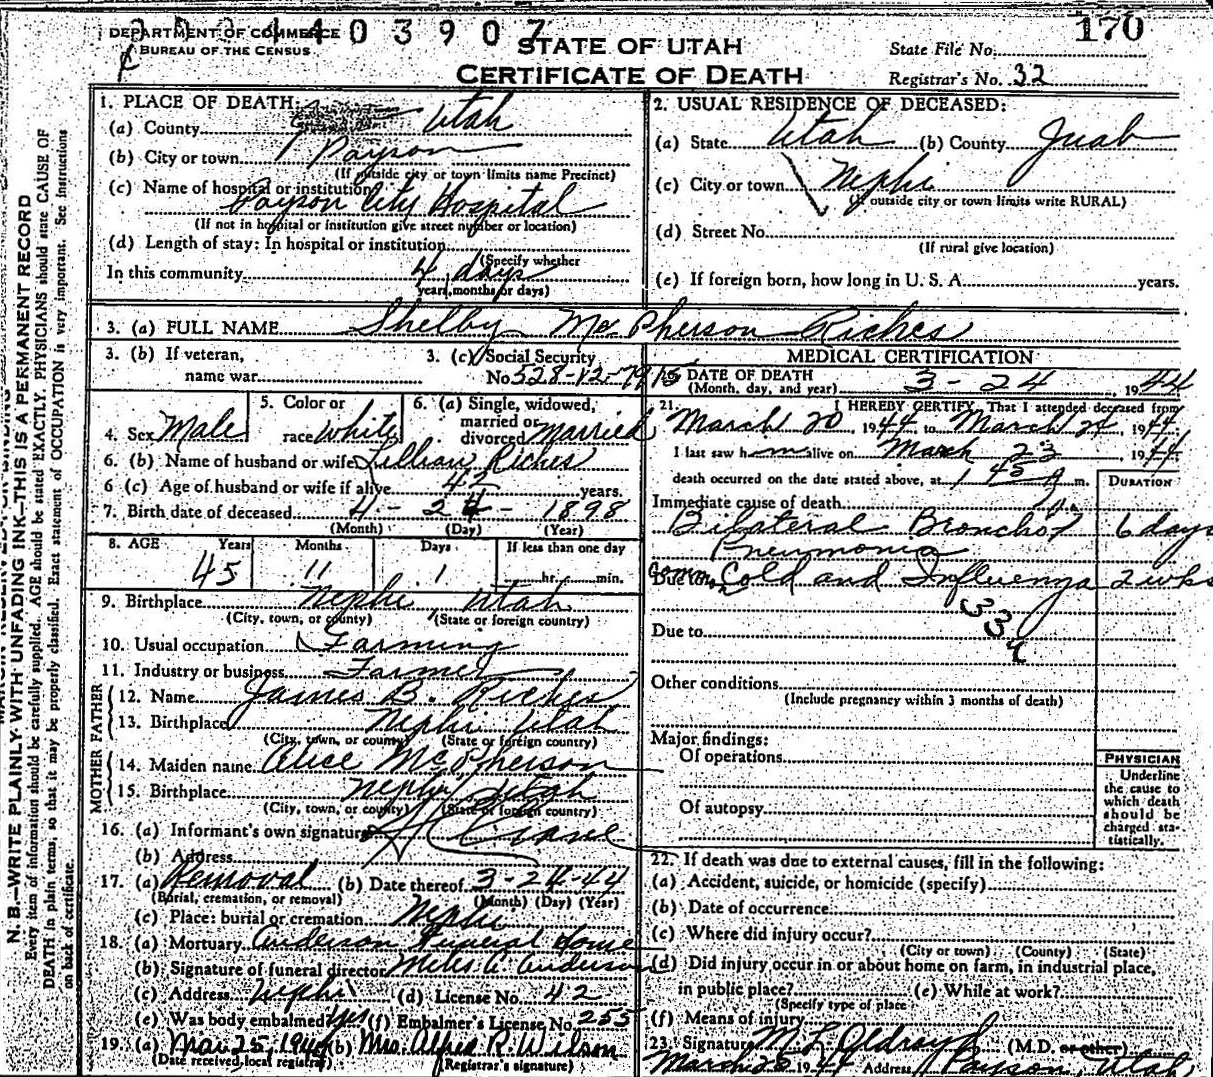 DEPARTMENT OF COMMERCE
BUREAU OF THE CENSUS
STATE OF UTAH
CERTIFICATE OF DEATH
170
State File No.
Registrar's No. 32
N. B.—WRITE PLAINLY WITH UNFADING INK—THIS IS A PERMANENT RECORD
Every item of information should be carefully supplied. AGE should be stated EXACTLY. PHYSICIANS should state CAUSE OF
DEATH in plain terms, so that it may be properly classified. Exact statement of OCCUPATION is very important. See Instructions
on back of certificate.
1. PLACE OF DEATH:
(a) County Utah
(b) City or town Payson
(If outside city or town limits name Precinct)
(c) Name of hospital or institution
Payson City Hospital
(If not in hospital or institution give street number or location)
(d) Length of stay: In hospital or institution
(Specify whether
In this community 4 days
years, months or days)
2. USUAL RESIDENCE OF DECEASED:
(a) State Utah (b) County Juab
(c) City or town Nephi
(If outside city or town limits write RURAL)
(d) Street No.
(If rural give location)
(e) If foreign born, how long in U. S. A. years.
3. (a) FULL NAME Shelby McPherson Riches
3. (b) If veteran,
name war
3. (c) Social Security
No. 528-12-7915
4. Sex Male
5. Color or
race White
6. (a) Single, widowed,
married or
divorced Married
6. (b) Name of husband or wife Lillian Riches
6 (c) Age of husband or wife if alive 42 years.
7. Birth date of deceased 4 - 24 - 1898
(Month) (Day) (Year)
8. AGE Years Months Days If less than one day
45 11 1 hr. min.
9. Birthplace Nephi, Utah
(City, town, or county) (State or foreign country)
10. Usual occupation Farming
11. Industry or business Farmer
FATHER
12. Name James B. Riches
13. Birthplace Nephi Utah
(City, town, or county) (State or foreign country)
MOTHER
14. Maiden name Alice McPherson
15. Birthplace Nephi Utah
(City, town, or county) (State or foreign country)
16. (a) Informant's own signature
(b) Address
17. (a) Removal (b) Date thereof 3-24-44
(Burial, cremation, or removal) (Month) (Day) (Year)
(c) Place: burial or cremation Nephi
18. (a) Mortuary Anderson Funeral Home
(b) Signature of funeral director Miles A. Anderson
(c) Address Nephi (d) License No. 42
(e) Was body embalmed Yes (f) Embalmer's License No. 255
19. (a) Mar. 25, 1944 (b) Mrs. Alfred R. Wilson
(Date received, local registrar) (Registrar's signature)
MEDICAL CERTIFICATION
DATE OF DEATH
(Month, day, and year) 3 - 24 , 1944
21. I HEREBY CERTIFY, That I attended deceased from
March 20, 1944 to March 24, 1944.
I last saw h m alive on March 23, 1944.
death occurred on the date stated above, at 1 45 m.
DURATION
Immediate cause of death
Bilateral Broncho 6 days
Pneumonia
Due to Common Cold and Influenza 2 wks
Due to
Other conditions
(Include pregnancy within 3 months of death)
Major findings:
Of operations
Of autopsy
PHYSICIAN
Underline
the cause to
which death
should be
charged sta-
tistically.
22. If death was due to external causes, fill in the following:
(a) Accident, suicide, or homicide (specify)
(b) Date of occurrence
(c) Where did injury occur?
(City or town) (County) (State)
(d) Did injury occur in or about home on farm, in industrial place,
in public place? (e) While at work?
(Specify type of place
(f) Means of injury
23. Signature M L Oldroyd (M.D. or other)
March 1944 Address Payson, Utah